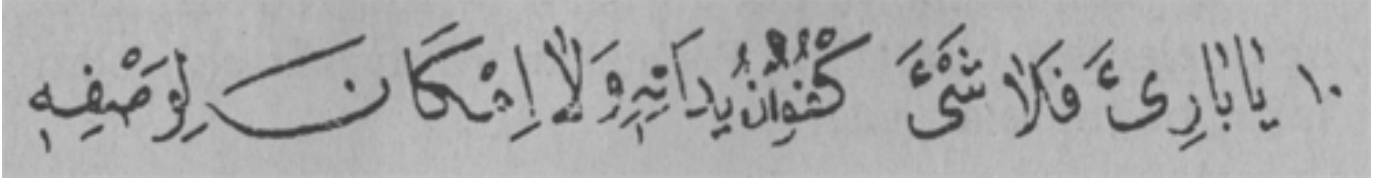 ١٠ يَا بَارِئَ فَلَا شَىْءَ كُفُوًا يُدَانِيهِ وَلَا اِمْكَانَ لِوَصْفِهِ